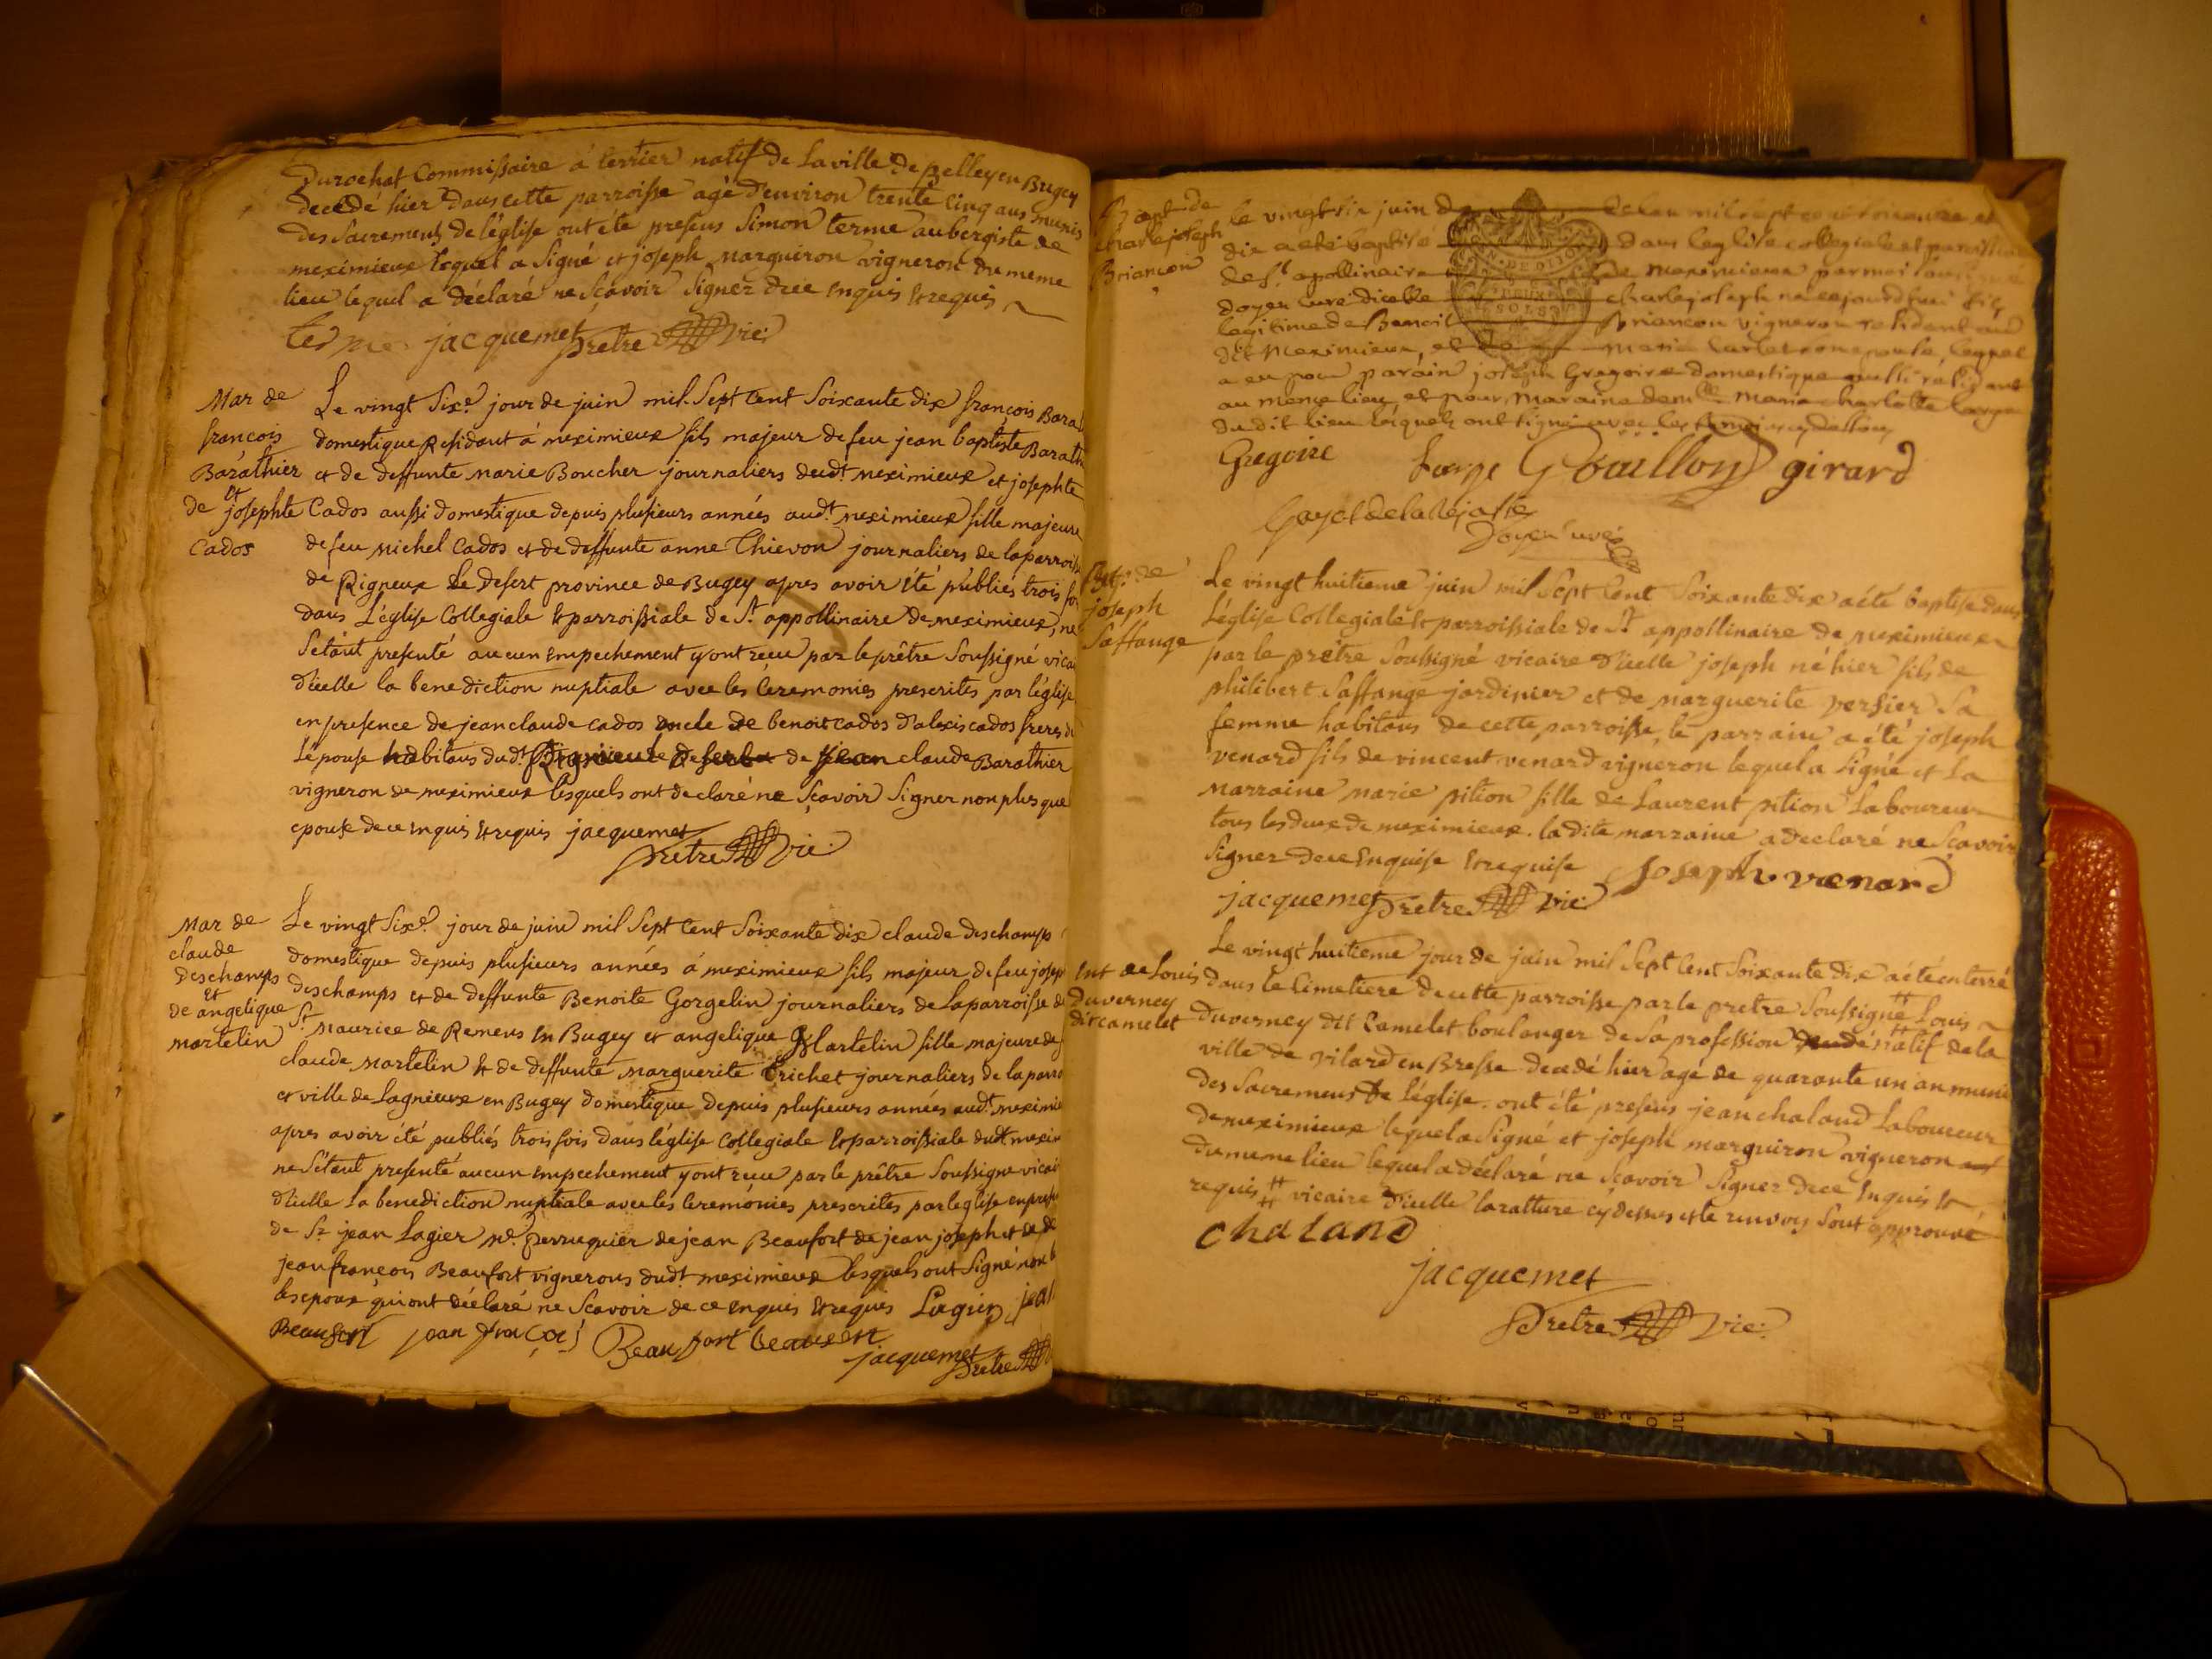 Durochat Commissaire à terrier natif de la ville de Belley en Bugey
decedé hier dans cette parroisse agé d'environ trente cinq ans munis
des Sacremens de l'église ont été presens Simon terme aubergiste de
meximieux lequel a Signé et joseph marguiron vigneron du meme
lieu lequel a déclaré ne Scavoir Signer de ce enquis et requis
terme jacquemet Pretre vic:
Mar de
françois
Barathier
et
de josephte
Cados
Le vingt Six.e jour de juin mil Sept Cent Soixante dix françois Bara
domestique Residant à meximieux fils majeur de feu jean baptiste Barath
et de deffunte marie Boucher journaliers dudt. meximieux et josephte
Cados aussi domestique depuis plusieurs années audt. meximieux fille majeure
de feu michel Cados et de deffunte anne Thievon journaliers de la parroiss
de Rigneux Le Desert province de Bugey apres avoir été publiés trois fo
dans L'église Collegiale et parroissiale de St. appollinaire de meximieux, ne
S'étant presenté aucun empechement y ont reçu par le prêtre Soussigné vicai
d'icelle la benediction nuptiale avec les Ceremonies prescrites par l'église
en presence de jean claude Cados oncle de benoit Cados d'alexis cados freres d
L'épouse habitans dudt. Rignieu le desert de jean claude Barathier
vigneron de meximieux lesquels ont declaré ne Scavoir Signer non plus que
epouse de ce enquis et requis jacquemet
Pretre vic:
Mar de
claude
deschamps
et
de angelique
martelin
Le vingt Six.e jour de juin mil Sept Cent Soixante dix claude deschamps
domestique depuis plusieurs années à meximieux fils majeur de feu josep
deschamps et de deffunte Benoite Gorgelin journaliers de la parroisse de
St. Maurice de Remens en Bugey et angelique Martelin fille majeure de
claude martelin et de deffunte marguerite Trichet journaliers de la parro
et ville de Lagnieux en Bugey domestique depuis plusieurs années audt. meximie
apres avoir été publiés trois fois dans l'église Collegiale et parroissiale dudt. mexim
ne S'étant presenté aucun empechement y ont reçu par le prêtre Soussigné vicai
d'icelle La benediction nuptiale avec les Ceremonies prescrites par l'eglise en prese
de Sr. jean Lagier md. perruquier de jean Beaufort de jean joseph et de
jean françois Beaufort vignerons dudt. meximieux lesquels ont Signé non
les epoux qui ont déclaré ne Scavoir de ce enquis et requis Lagier jean
Beaufort jean françois Beaufort beaufort
jacquemet Pretre
Bapt. de
charle joseph
Briancon
le vingt six juin de l'an mil sept cent soixante et
dix a eté baptisé dans leglise collegiale et paroissiale
de St. apollinaire de meximieux par moi
doyen curé dicelle charle joseph né aujourdhui fils
legitime de Benoit Briancon vigneron resident au
dit Meximieux, et de marie son epouse, lequel
a eu pour parain joseph Gregoire domestique aussi residant
au meme lieu et pour maraine demlle. marie charlotte large
du dit lieu lesquels ont signé avec les temoins cy dessous
Gregoire large Gouillon girard
doyen curé
Bapt. de
joseph
Saffange
Le vingt huitieme juin mil Sept Cent Soixante dix a été baptisé dans
L'église Collegiale et parroissiale de St. appollinaire de meximieux
par le prêtre Soussigné vicaire d'icelle joseph né hier fils de
philibert Saffange jardinier et de marguerite versier Sa
femme habitans de cette parroisse, le parrain a été joseph
venard fils de vincent venard vigneron lequel a Signé et La
marraine marie pition fille de Laurent pition Laboureur
tous les deux de meximieux. la dite marraine a declaré ne Scavoir
Signer de ce enquise et requise Joseph venard
jacquemet Pretre vic:
Ent de Louis
Duverney
dit camelet
Le vingt huitieme jour de juin mil Sept Cent Soixante dix a été enterré
dans le Cimetiere de cette parroisse par le pretre Soussigné # Louis
Duverney dit Camelet boulanger de Sa profession natif de la
ville de vilard en Bresse decedé hier agé de quarante un an muni
des Sacremens de l'église. ont été presens jean chaland Laboureur
de meximieux lequel a Signé et joseph marguiron vigneron
du meme lieu lequel a déclaré ne Scavoir Signer de ce enquis et
requis # vicaire d'icelle la rature cy dessus et le renvoy Sont approuvé
chaland
jacquemet
Pretre vic: